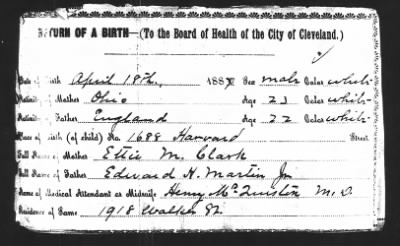 RETURN OF A BIRTH—(To the Board of Health of the City of Cleveland.)
Date of Birth April 18th, 188 Sex male Color white
Nativity of Mother Ohio Age 23 Color white
Nativity of Father England Age 22 Color white
Place of Birth (of child) No. 1688 Harvard Street
Full Name of Mother Ettie M. Clark
Full Name of Father Edward H. Martin Jr
Name of Medical Attendant or Midwife Henry McQuiston M.D.
Residence of Same 1918 Walker St.